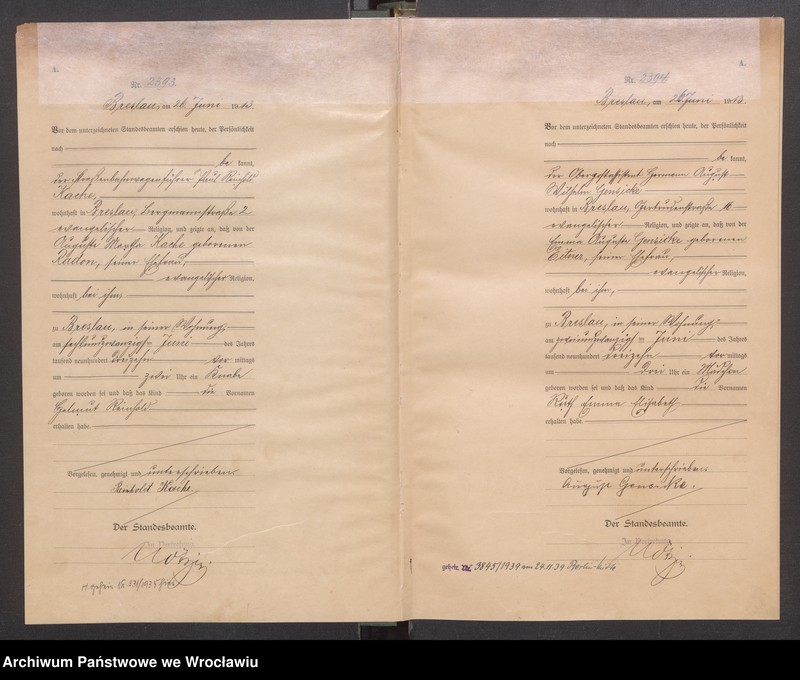 A.
Nr. 2393.
Breslau, am 26. Juni 1913.
Vor dem unterzeichneten Standesbeamten erschien heute, der Persönlichkeit
nach
be kannt,
der Straßenbahnwagenführer Paul Reinhold
Kache,
wohnhaft in Breslau, Bergmannstraße 2
evangelischer Religion, und zeigte an, daß von der
Auguste Martha Kache geborenen
Radon, seiner Ehefrau,
evangelischer Religion,
wohnhaft bei ihm,
zu Breslau, in seiner Wohnung,
am sechsundzwanzigsten Juni des Jahres
tausend neunhundert dreizehn vor mittags
um zwei Uhr ein Knabe
geboren worden sei und daß das Kind die Vornamen
Helmut Reinhold
erhalten habe.
Vorgelesen, genehmigt und unterschrieben
Reinhold Kache.
Der Standesbeamte.
In Vertretung
A.
Nr. 2394.
Breslau, am 26. Juni 1913.
Vor dem unterzeichneten Standesbeamten erschien heute, der Persönlichkeit
nach
be kannt,
der Hermann August
Wilhelm Gensicke
wohnhaft in Breslau, 16
evangelischer Religion, und zeigte an, daß von der
Emma Auguste Gensicke geborenen
seiner Ehefrau,
evangelischer Religion,
wohnhaft bei ihm,
zu Breslau, in seiner Wohnung,
am Juni des Jahres
tausend neunhundert dreizehn vor mittags
um drei Uhr ein Mädchen
geboren worden sei und daß das Kind die Vornamen
Ruth Emma Elisabeth
erhalten habe.
Vorgelesen, genehmigt und unterschrieben
August Gensicke.
Der Standesbeamte.
In Vertretung
geheir. Nr. 3845/1939 am 24.11.39 Berlin
Archiwum Państwowe we Wrocławiu